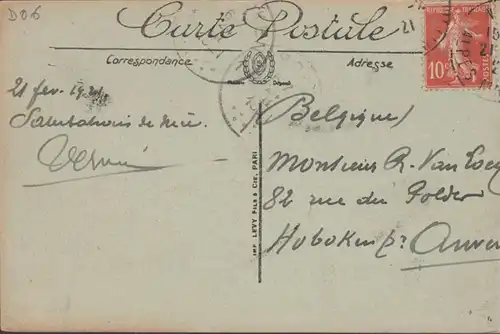 D06
Carte Postale
Correspondance
Adresse
10c
POSTES
21 fev. 1921
Salutations de Nice.
(Belgique)
Monsieur R. Van
82 rue du Polder
Hoboken pr. Anvers
IMP. LEVY FILS & CIE, PARIS